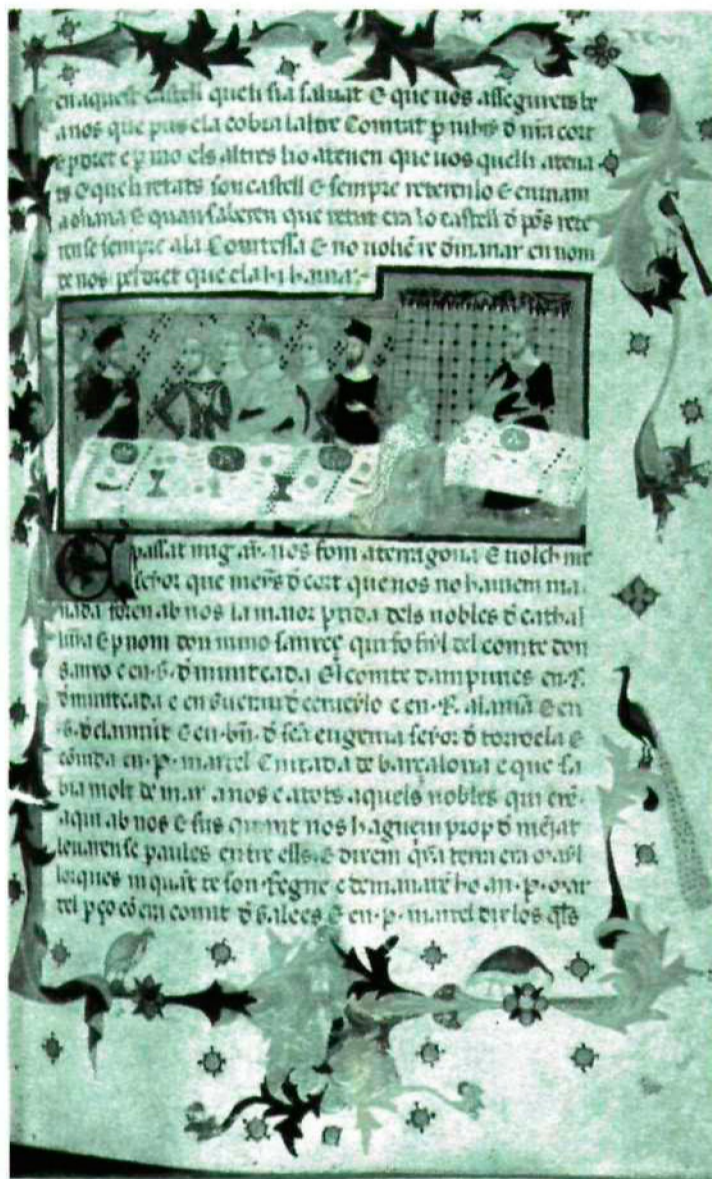 en aquest castell queli sia saluat & que uos assegurets be
a nos que pus ela cobra laltre Comtat p
& p dret e p mo els altres ho atenen que uos queli atena
ts & queli retats son castell & sempre reterenlo & exiren
a & quan saberen que retut era lo castell d põs rete
rense sempre ala Comtessa & no uolgere demanar en nom
de nos pel dret que ela hi hauia
E passat mig añ nos fom a terragona & uolch nře
señor que meñs d cort que nos no hauiem ma
nada foren ab nos la maior ptida dels nobles d cathal
unia & p nom don nuno sanxeç qui fo fiyl del comte don
sanxo e en .G. d muntcada & el comte dampuries en .R.
d muntcada e en Guerau d ceruerlo e en .R. alamã & en
.G. d claramut & en .bñ. d sca eugenia señor d torroela &
en .p. martel Ciutada de barçalona e que sa
bia molt de mar a nos e a tots aquels nobles qui erẽ
aqui ab nos & sus quant nos haguem prop d mejat
leuarense paules entre ells & direm q̃na terra era mayl
lorques ni quãt te son regne e demanarẽ ho a n .p. mar
tel p ço cõ era comit d Galees & en .p. martel dix los q̃ls